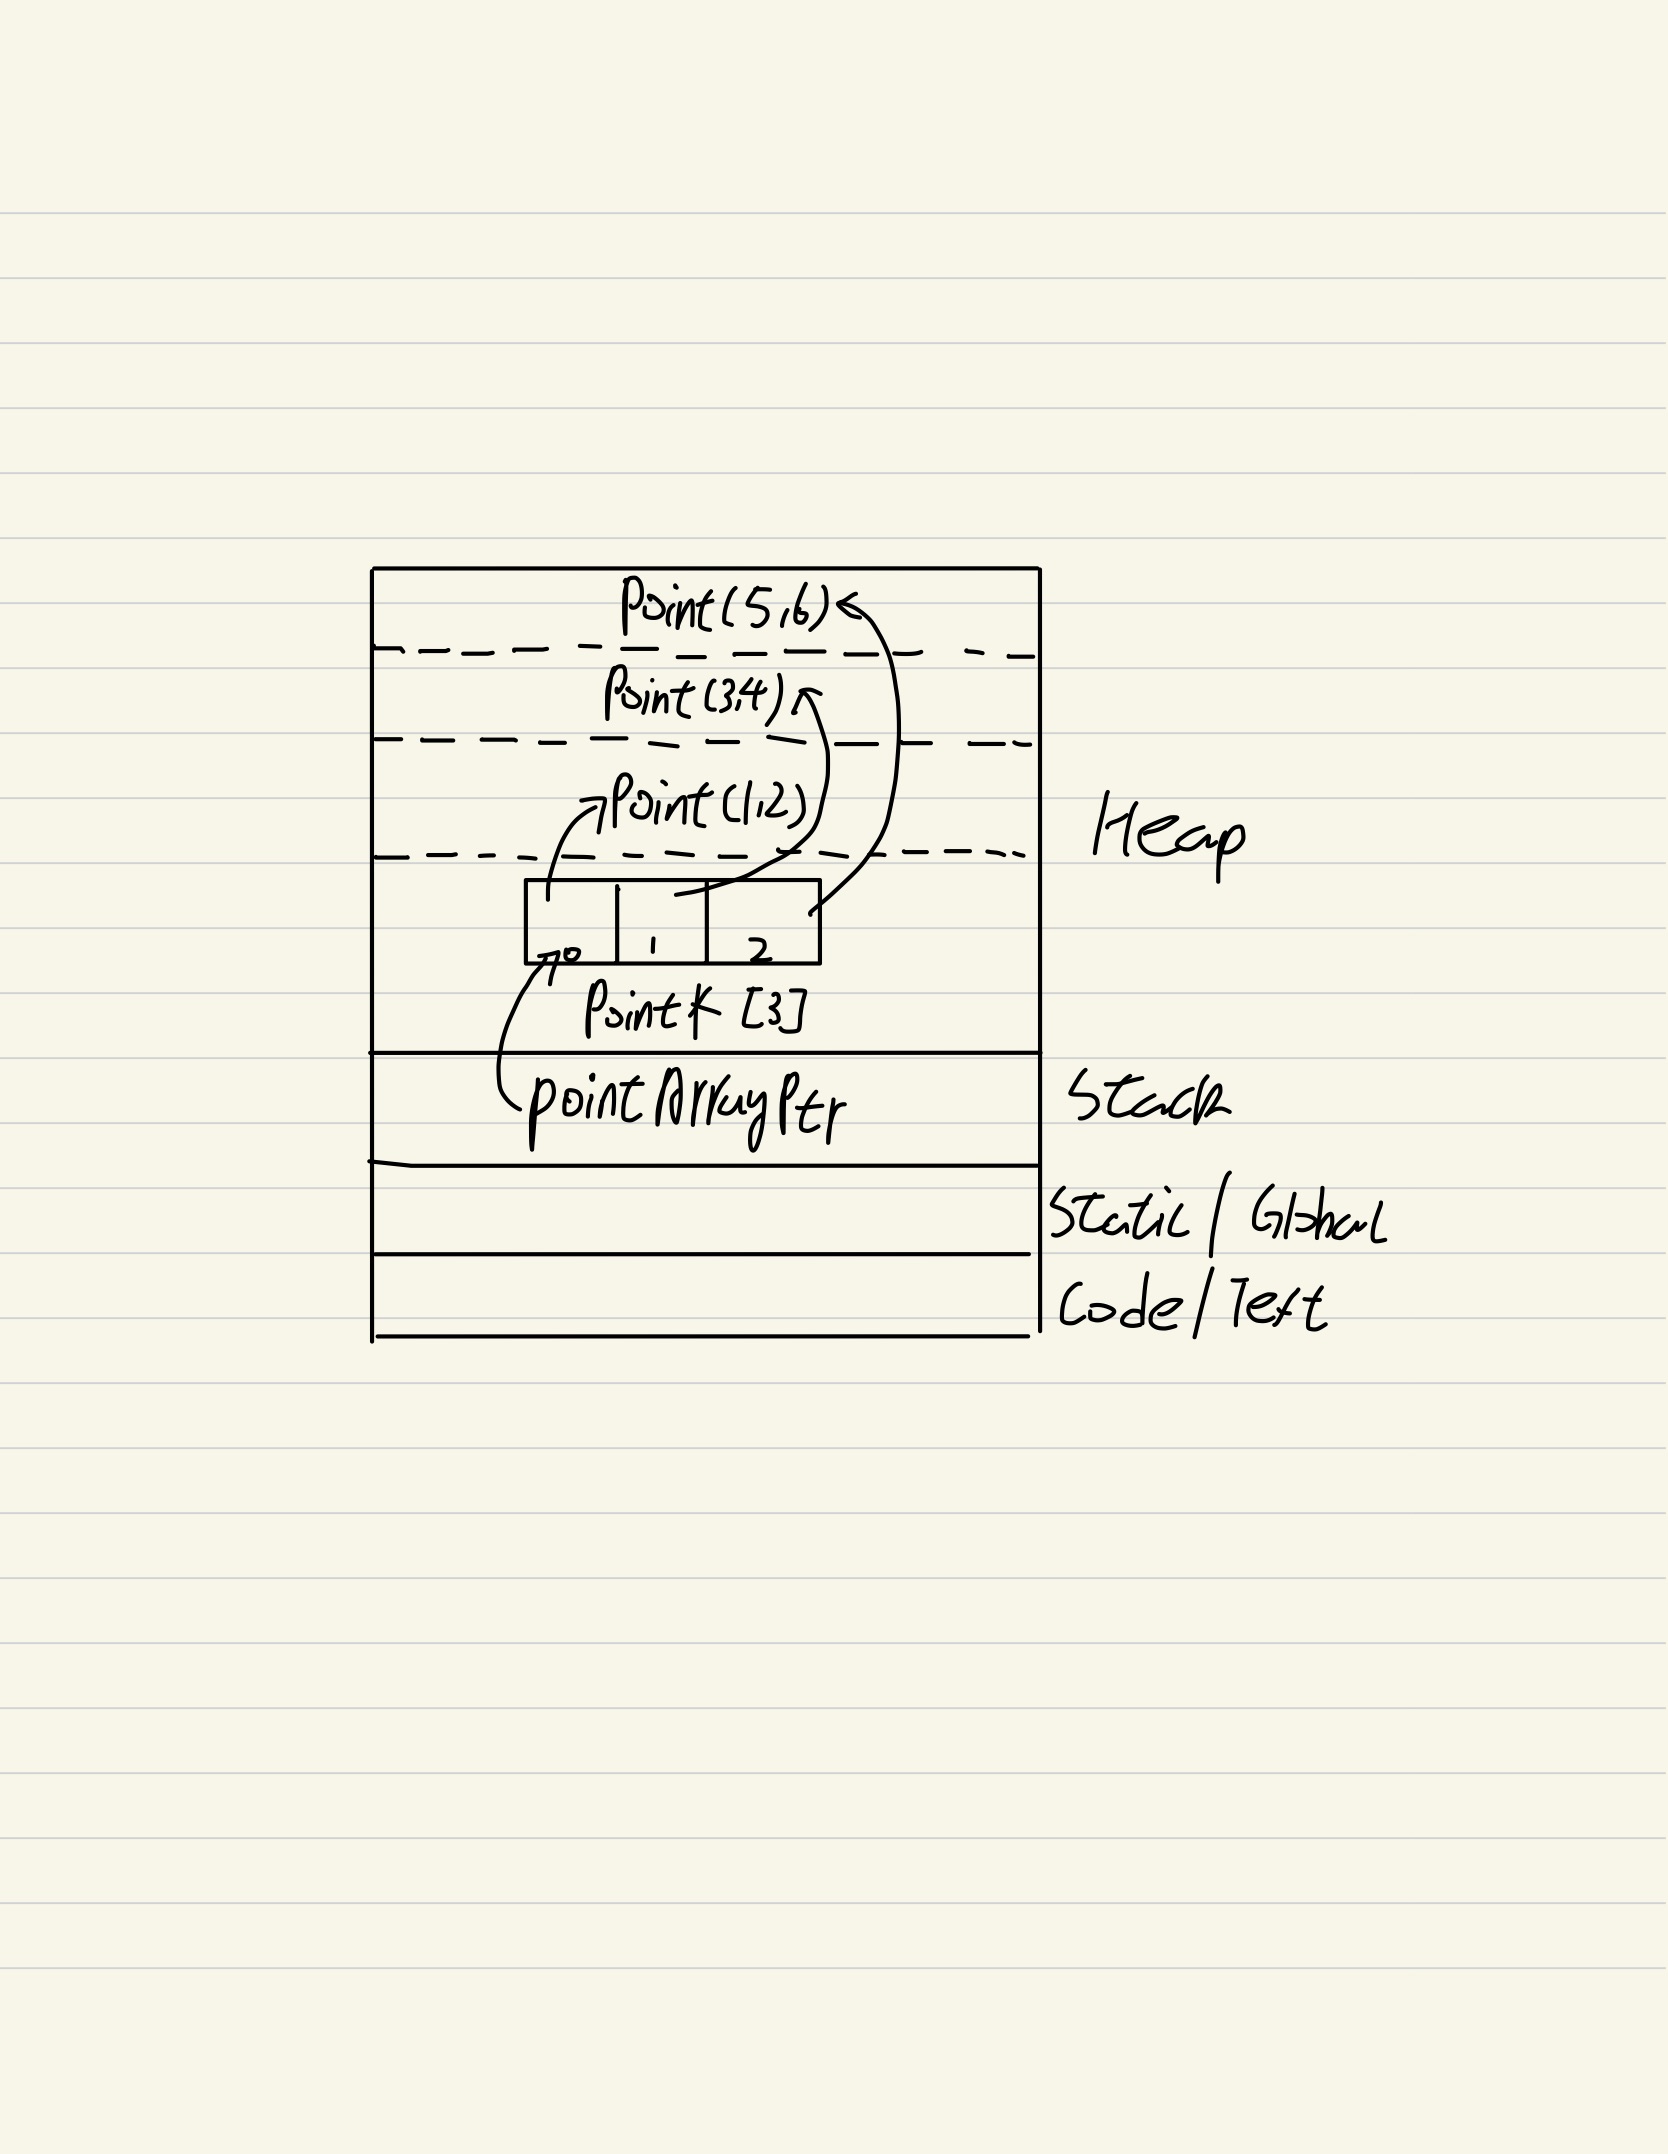 Point(5,6)
Point(3,4)
Point(1,2)
Heap
0 1 2
Point* [3]
pointArrayPtr
Stack
Static/Global
Code/Text